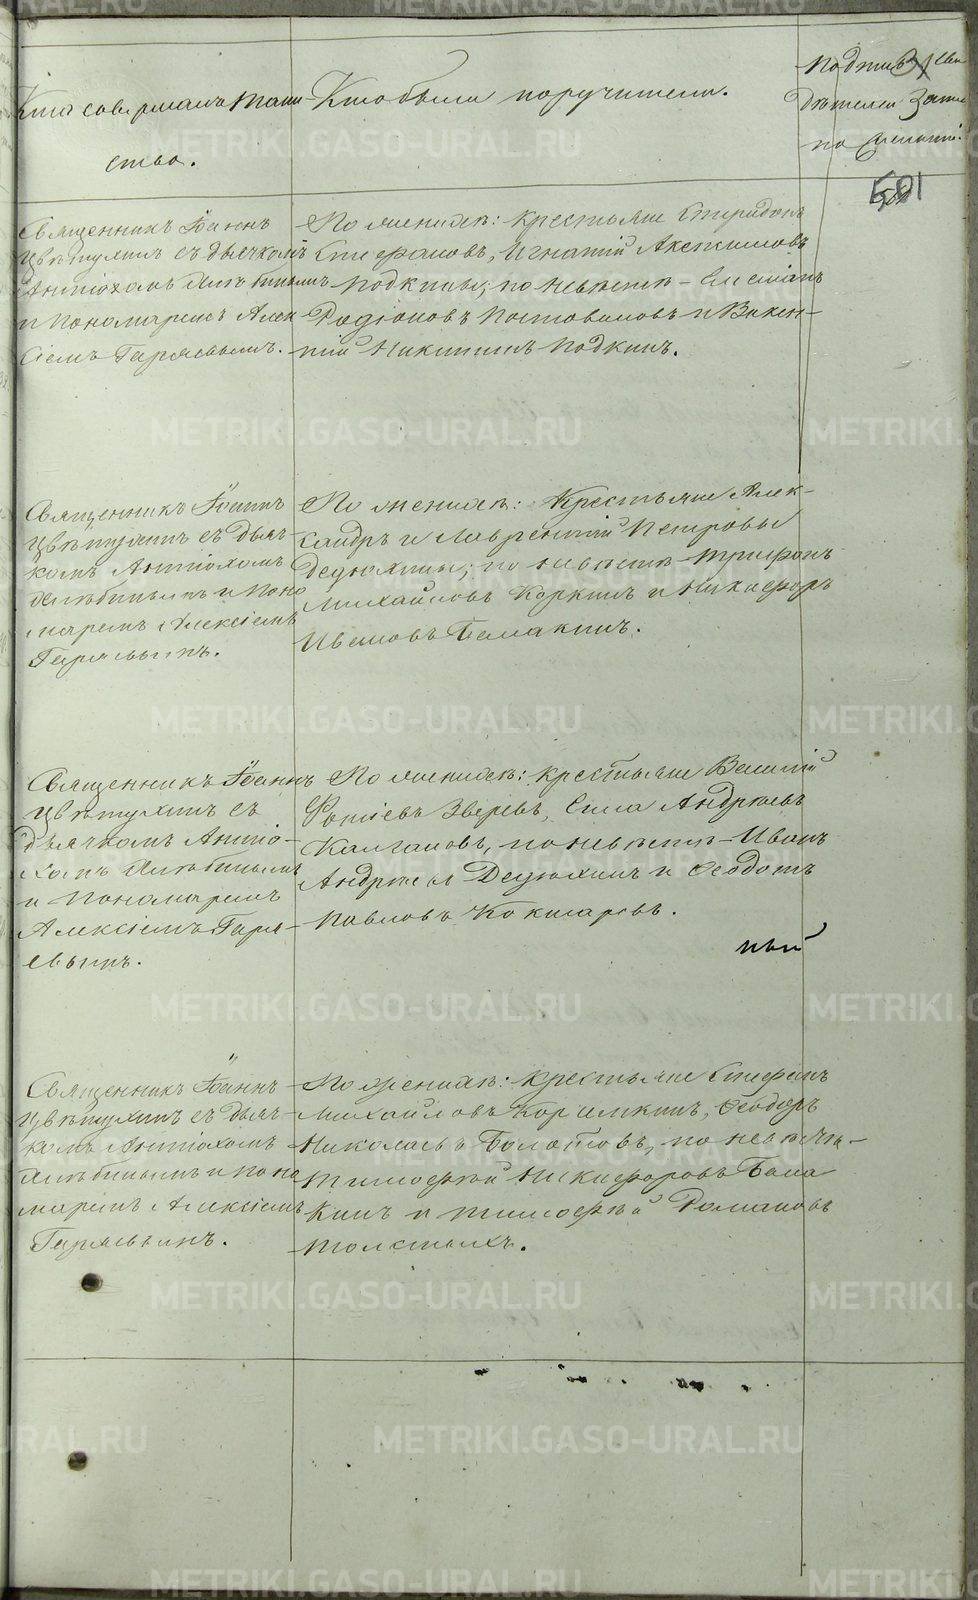 Кто совершалъ таин-
ство.
Кто были поручители.
Подпись сви
дѣтелей запи
по желанію.
501
Священникъ Іоаннъ
Цвѣтухинъ съ дьячкомъ
Антіохомъ
и Пономаремъ Алек
сіемъ
По женихѣ: крестьяне Спиридонъ
Стефановъ, Игнатій
Подкины; по невѣстѣ –
Родіоновъ Постоваловъ и Викен-
тій Никитинъ Подкинъ.
Священникъ Іоаннъ
Цвѣтухинъ съ дьяч-
комъ Антіохомъ
и Поно
маремъ Алексіемъ
По женихѣ: Крестьяне Алек-
сандръ и Лаврентій Петровы
Дедюхины; по невѣстѣ – Трифонъ
Михайловъ Коркинъ и Никифоръ
Ивановъ Балакинъ.
Священникъ Іоаннъ
Цвѣтухинъ съ
дьячкомъ Антіо-
хомъ
и Пономаремъ
Алексіемъ
По женихѣ: крестьяне Василій
Фотіевъ Звѣревъ, Сила Андреевъ
Калгановъ, по невѣстѣ – Иванъ
Андреевъ Дедюхинъ и Ѳеодотъ
Павловъ Кокшаровъ.
ный
Священникъ Іоаннъ
Цвѣтухинъ съ дьяч-
комъ Антіохомъ
и поно
маремъ Алексіемъ
По женихѣ: крестьяне Стефанъ
Михайловъ Ѳеодоръ
Николаевъ Болотовъ, по невѣстѣ –
Тимофей Никифоровъ Бала
кинъ и Тимофей Романовъ
Толстыхъ.
METRIKI.GASO-URAL.RU